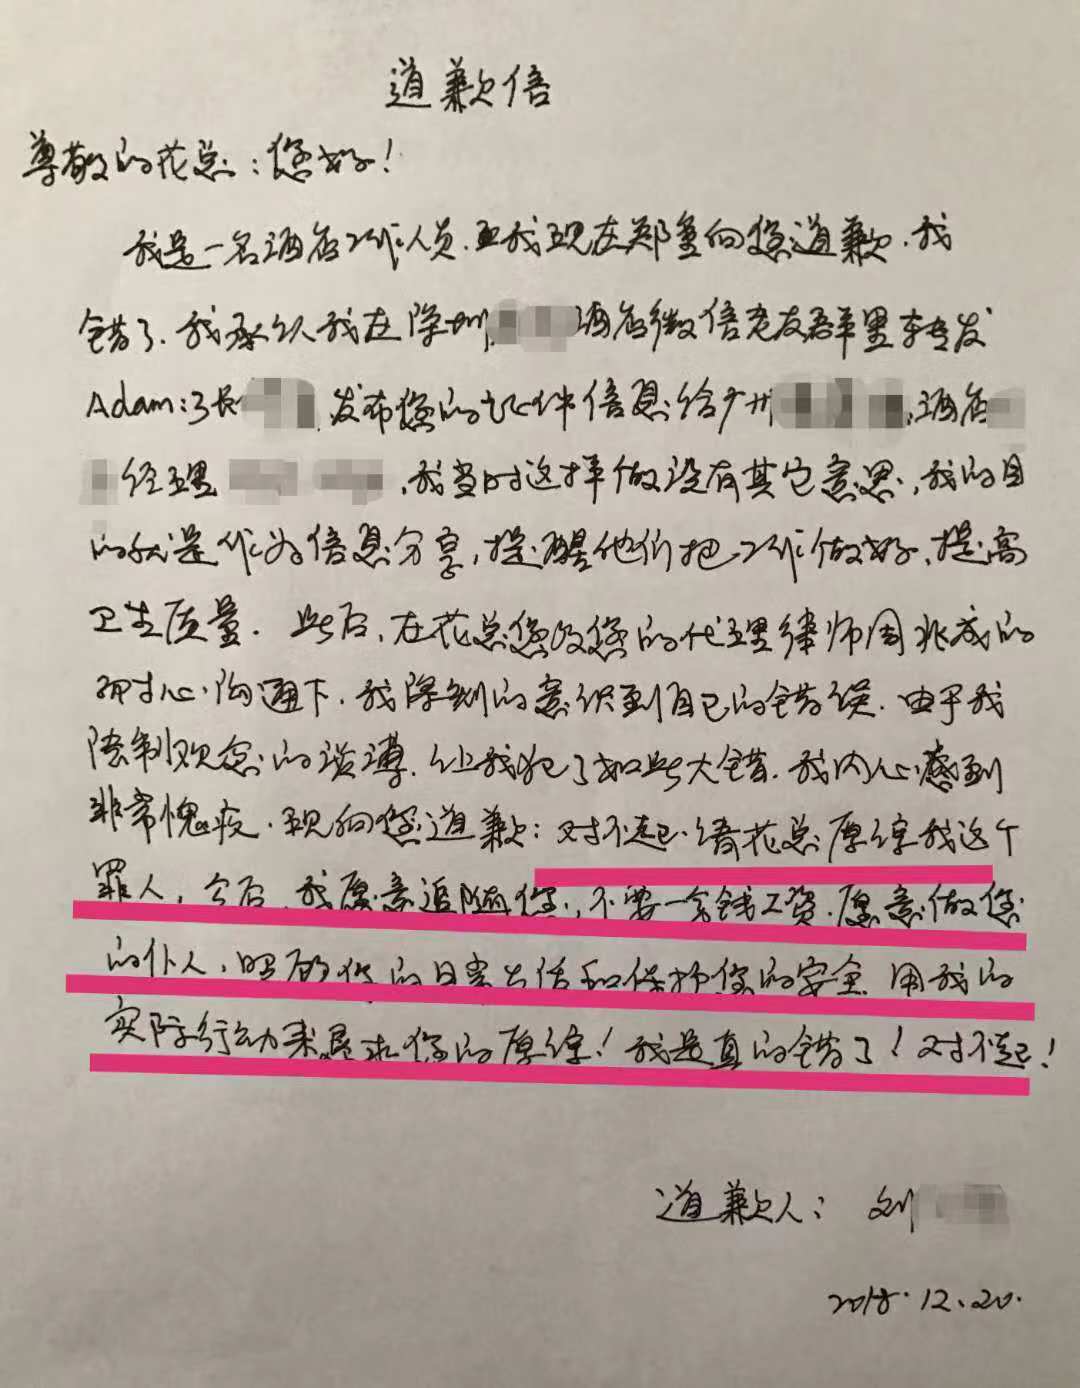 道歉信
尊敬的花总：您好！
我是一名酒店工作人员.而我现在郑重向您道歉.我
错了.我承认我在深圳酒店微信老友群里转发
Adam:张 发布您的证件信息给广州 酒店
经理 ,我当时这样做没有其它意思,我的目
的就是作为信息分享,提醒他们把工作做好,提高
卫生质量. 此后,在花总您及您的代理律师周兆成的
耐心沟通下.我深刻的意识到自己的错误.由于我
法制观念的淡薄.让我犯了如此大错.我内心感到
非常愧疚.现向您道歉:对不起.请花总原谅我这个
罪人,今后,我愿意追随您,不要一分钱工资.愿意做您
的仆人,照顾您的日常生活和保护您的安全 用我的
实际行动来恳求您的原谅!我是真的错了!对不起!
道歉人: 刘
2018.12.20.